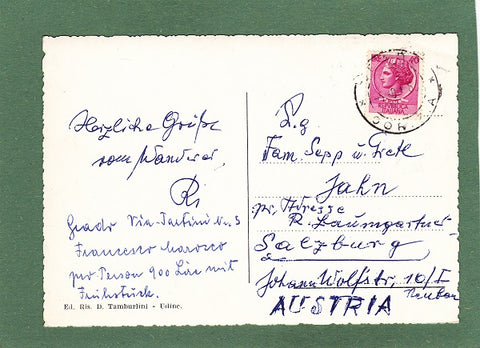 Herzliche Grüße
vom Wanderer,
Ri
Grado Via Tartini N. 5
Francesco Marocco
pro Person 900 Lire mit
Frühstück.
Ed. Ris. D. Tamburlini - Udine.
P.g.
Fam. Sepp u. Gretl
Jahn
pr. Adresse
R. Baumgartner
Salzburg
Johann Wolfstr. 10/I
AUSTRIA